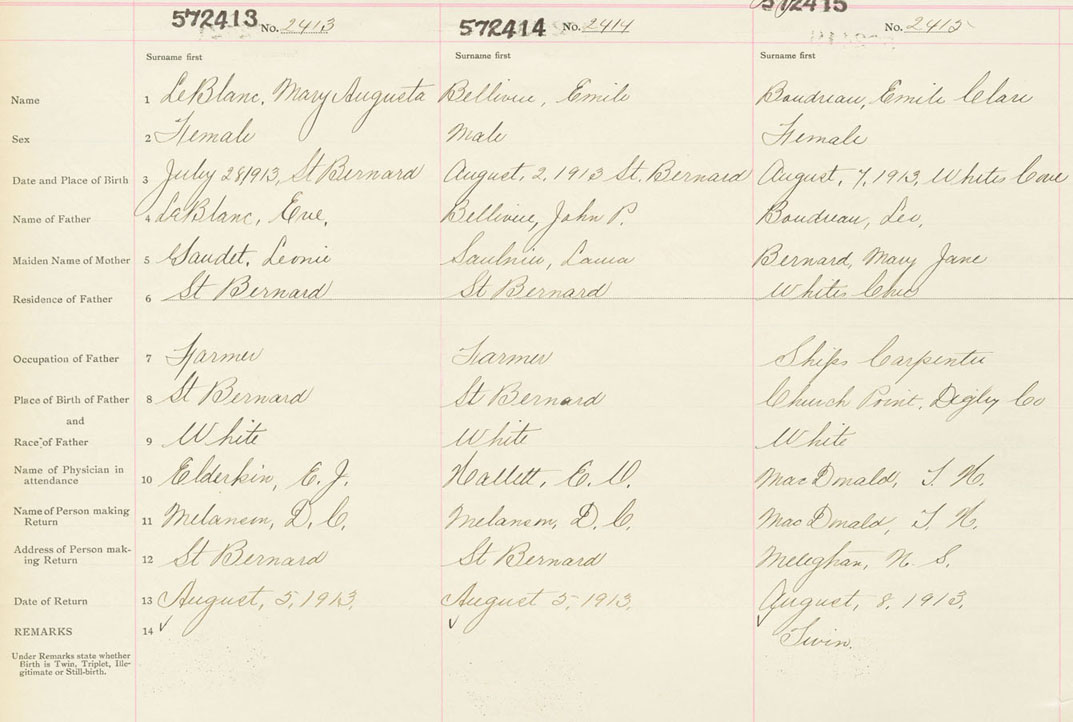 572413 No. 2413 572414 No. 2414 572415 No. 2415
Surname first Surname first Surname first
Name 1 LeBlanc, Mary Augusta Bellivue, Emile Boudreau, Emile Clare
Sex 2 Female Male Female
Date and Place of Birth 3 July 28 1913, St Bernard August, 2, 1913 St. Bernard August, 7, 1913, Whites Cove
Name of Father 4 LeBlanc, Eve, Bellivue, John P. Boudreau, Leo,
Maiden Name of Mother 5 Gaudet, Leonie Saulnier, Laura Bernard, Mary Jane
Residence of Father 6 St Bernard St Bernard Whites
Occupation of Father 7 Farmer Farmer Ships Carpenter
Place of Birth of Father 8 St Bernard St Bernard Church Point, Digby Co
and
Race of Father 9 White White White
Name of Physician in
attendance 10 Elderkin, E. J. Hallett, E. MacDonald, H.
Name of Person making
Return 11 Melanson, D. C. Melanson, D. C. MacDonald, H.
Address of Person mak-
ing Return 12 St Bernard St Bernard Meteghan, N. S.
Date of Return 13 August, 5, 1913. August 5, 1913. August, 8, 1913.
REMARKS 14 Twin.
Under Remarks state whether
Birth is Twin, Triplet, Ille-
gitimate or Still-birth.